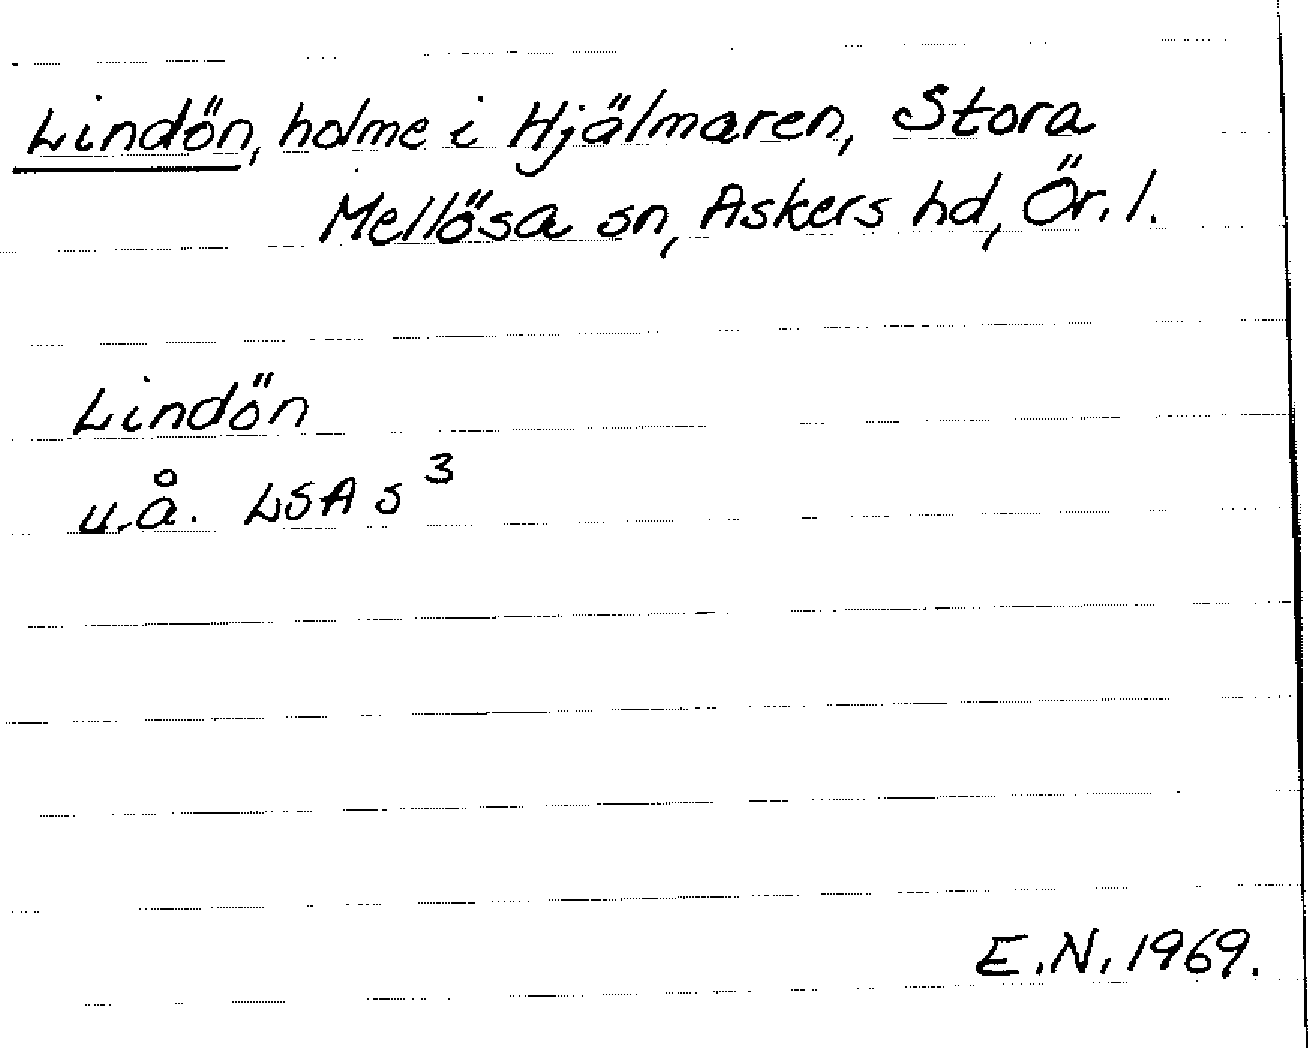 Lindön, holme i Hjälmaren, Stora
Mellösa sn, Askers hd, Ör. l.
Lindön
u.å. LSA s³
E.N. 1969.